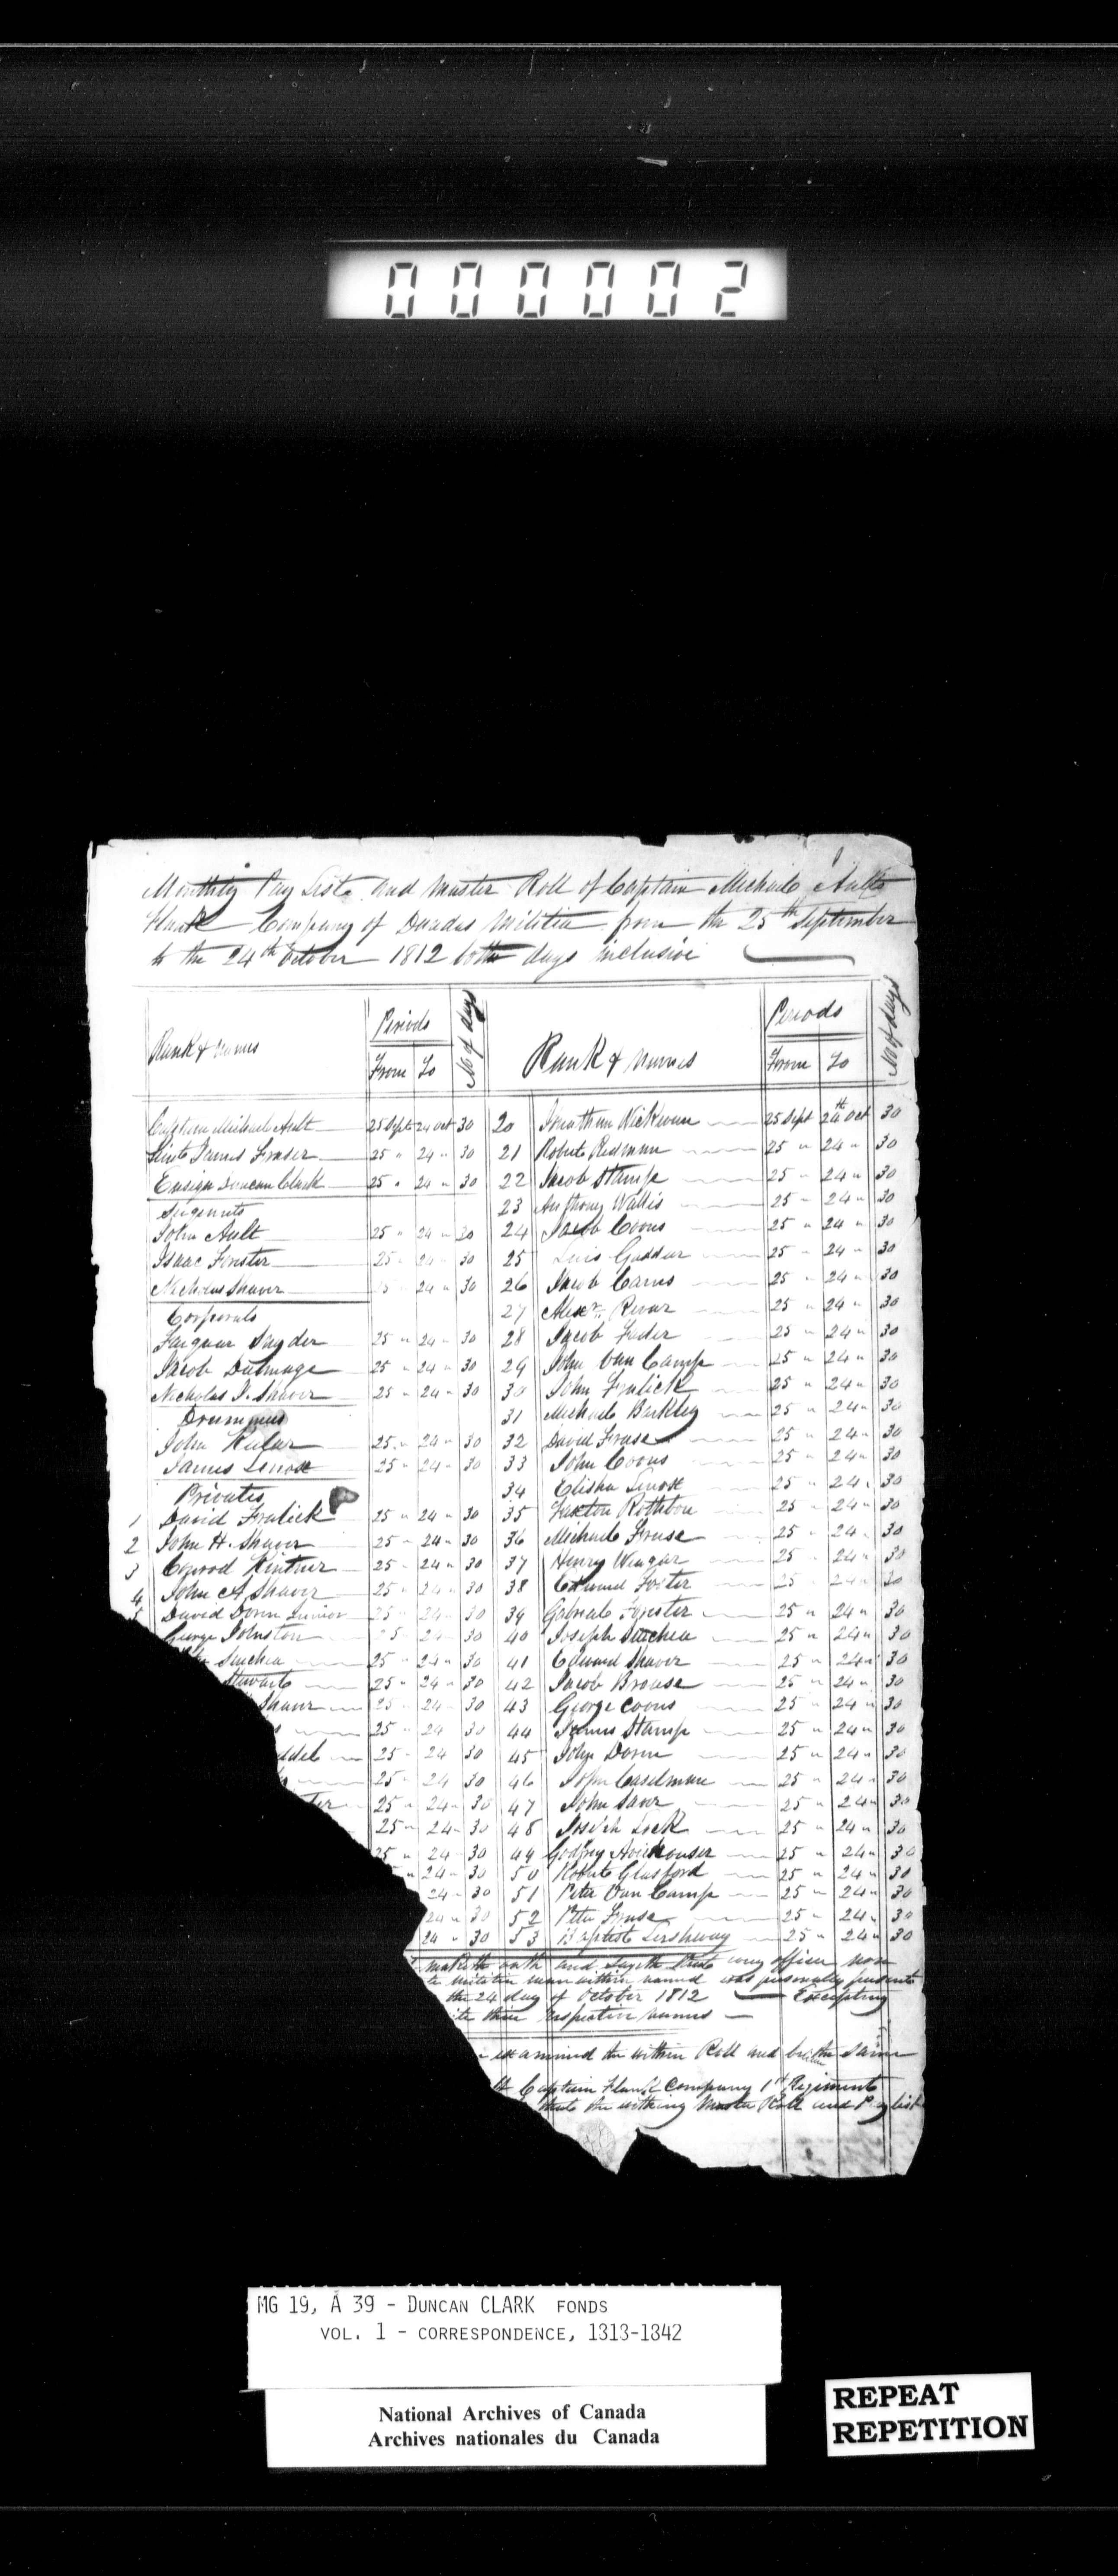 000002
Monthly Pay List and Muster Roll of Captain Michael Aults
Flank Company of Dundas Militia from the 25th September
to the 24th October 1812 both days inclusive
Rank & Names Periods No of days Rank & Names Periods No of days
From To From To
Captain Michael Ault 25 Sept 24 Oct 30 20 Jonathan 25 Sept 24th Oct 30
Lieut James Fraser 25 " 24 " 30 21 Robert Redmon 25 " 24 " 30
Ensign Duncan Clark 25 " 24 " 30 22 Jacob Stamp 25 " 24 " 30
Sergents 23 Anthony Wallis 25 " 24 " 30
John Ault 25 " 24 " 30 24 Jacob Coons 25 " 24 " 30
Isaac Forster 25 " 24 " 30 25 Luis 25 " 24 " 30
Nicholas Shaver 25 " 24 " 30 26 Jacob 25 " 24 " 30
Corporals 27 Alexr. 25 " 24 " 30
Farquar Snyder 25 " 24 " 30 28 Jacob 25 " 24 " 30
Jacob Dulmage 25 " 24 " 30 29 John Van Camp 25 " 24 " 30
Nicholas J. Shaver 25 " 24 " 30 30 John Fralick 25 " 24 " 30
Drummers 31 Michael Barkley 25 " 24 " 30
John 25 " 24 " 30 32 David Fruse 25 " 24 " 30
James Lenox 25 " 24 " 30 33 John Coons 25 " 24 " 30
Privates 34 Elisha Lenox 25 " 24 " 30
1 David Fralick 25 " 24 " 30 35 Rothbon 25 " 24 " 30
2 John H. Shaver 25 " 24 " 30 36 Michael Fruse 25 " 24 " 30
3 Conrod Kintner 25 " 24 " 30 37 Henry Weagar 25 " 24 " 30
4 John A. Shaver 25 " 24 " 30 38 Edward Foster 25 " 24 " 30
5 David Dorin Junior 25 " 24 " 30 39 Gabriel Forister 25 " 24 " 30
George Johnston 25 " 24 " 30 40 Joseph 25 " 24 " 30
25 " 24 " 30 41 Edward Shaver 25 " 24 " 30
Stewart 25 " 24 " 30 42 Jacob Brouse 25 " 24 " 30
Shaver 25 " 24 " 30 43 George Coons 25 " 24 " 30
25 " 24 30 44 James Stamp 25 " 24 " 30
25 " 24 30 45 John Dorin 25 " 24 " 30
25 " 24 30 46 John Caselman 25 " 24 " 30
25 " 24 " 30 47 John 25 " 24 " 30
25 " 24 " 30 48 Joseph Lock 25 " 24 " 30
25 " 24 " 30 49 Godfrey 25 " 24 " 30
" 24 " 30 50 Robert Glasford 25 " 24 " 30
24 " 30 51 Peter Van Camp 25 " 24 " 30
24 " 30 52 Peter Fruse 25 " 24 " 30
24 " 30 53 Baptist 25 " 24 " 30
maketh oath and sayeth that every officer non
militia man within named was personally present
the 24 day of October 1812 Excepting
their respective names
examined the within Roll and the same
Captain Flank Company 1st Regiment
the withing Muster Roll and Pay list
MG 19, A 39 - DUNCAN CLARK FONDS
VOL. 1 - CORRESPONDENCE, 1813-1842
National Archives of Canada
Archives nationales du Canada
REPEAT
REPETITION